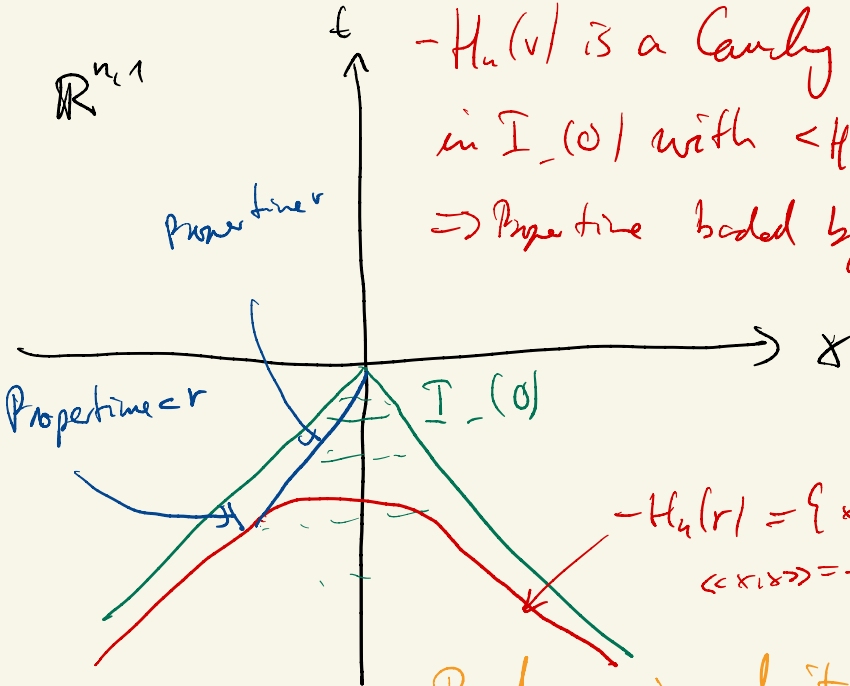 t
ℝⁿ'¹
-Hₙ(r) is a Cauchy
in I_(0) with <H
Propertime r
=> Propertime b
x
Propertime < r
I_(0)
-Hₙ(r) = { x
<<x,x>> = -